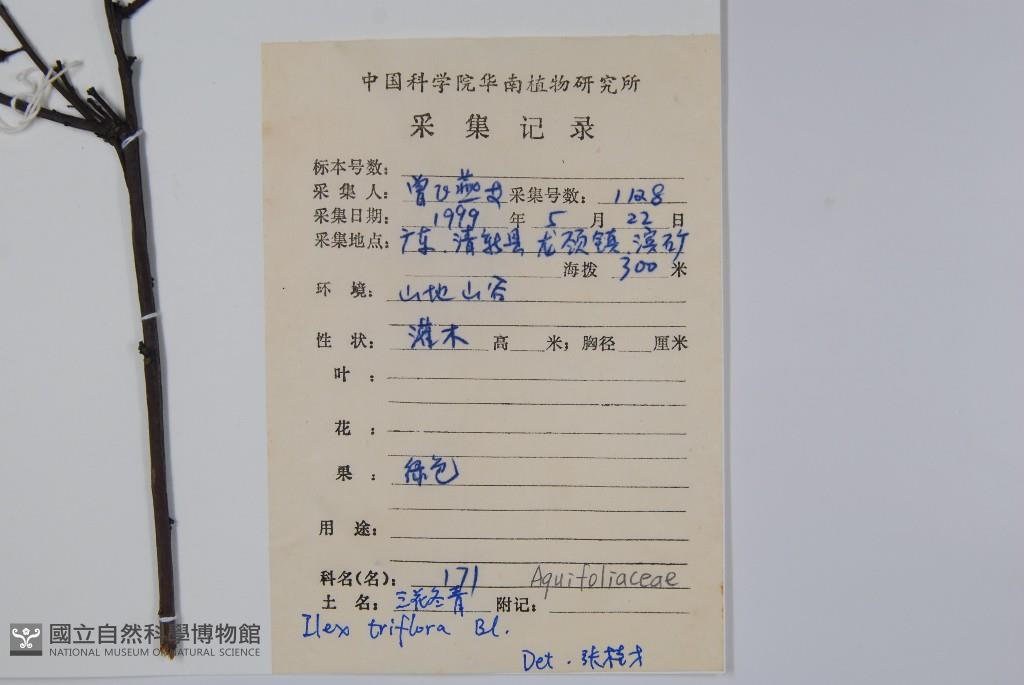 中国科学院华南植物研究所
采集记录
标本号数：
采集人：曾飞燕 采集号数：1128
采集日期：1999年5月22日
采集地点：广东 清新县 龙颈镇
海拨300米
环境：山地山谷
性状：灌木 高 米；胸径 厘米
叶：
花：
果：绿色
用途：
科名(名)：171 Aquifoliaceae
土名：三花冬青 附记：
Ilex triflora Bl.
Det. 张桂才
國立自然科學博物館
NATIONAL MUSEUM OF NATURAL SCIENCE